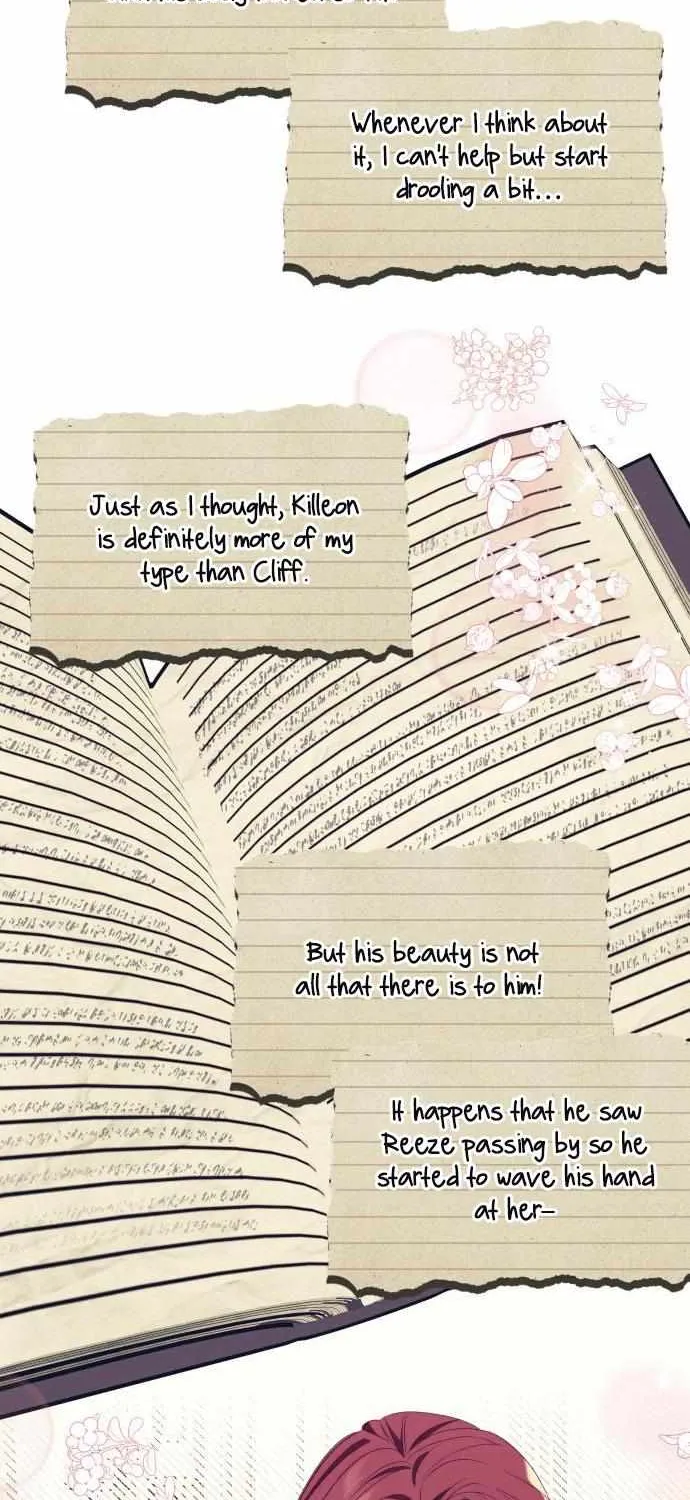 Whenever I think about
it, I can't help but start
drooling a bit...
Just as I thought, Killeon
is definitely more of my
type than Cliff.
But his beauty is not
all that there is to him!
It happens that he saw
Reeze passing by so he
started to wave his hand
at her–